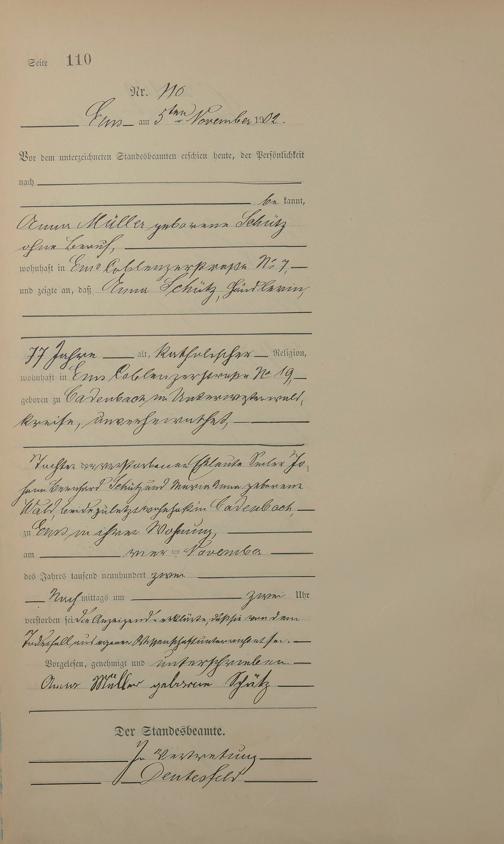 Seite 110
Nr. 110
Ems am 5ten November 1902.
Vor dem unterzeichneten Standesbeamten erschien heute, der Persönlichkeit
nach
be kannt,
Anna Müller geborene Schütz
ohne Beruf,
wohnhaft in Ems Coblenzerstraße No 7,
und zeigte an, daß Anna Schütz, Händlerin,
77 Jahre alt, katholischer Religion,
wohnhaft in Ems Coblenzerstraße No 19,
geboren zu Cadenbach, im Unterwesterwald,
kreise, unverheirathet,
Tochter der verstorbenen Eheleute Jo,
hann Bernhard Schütz und Maria Anna geborene
Wald, beide zuletzt wohnhaft in Cadenbach,
zu Ems, in ihrer Wohnung,
am November
des Jahres tausend neunhundert zwei
Nach mittags um zwei Uhr
verstorben sei. Die Anzeigende erklärte, daß sie von dem
Todesfall aus eigener Wissenschaft unterrichtet sei.
Vorgelesen, genehmigt und unterschrieben
Anna Müller geborene Schütz
Der Standesbeamte.
In Vertretung